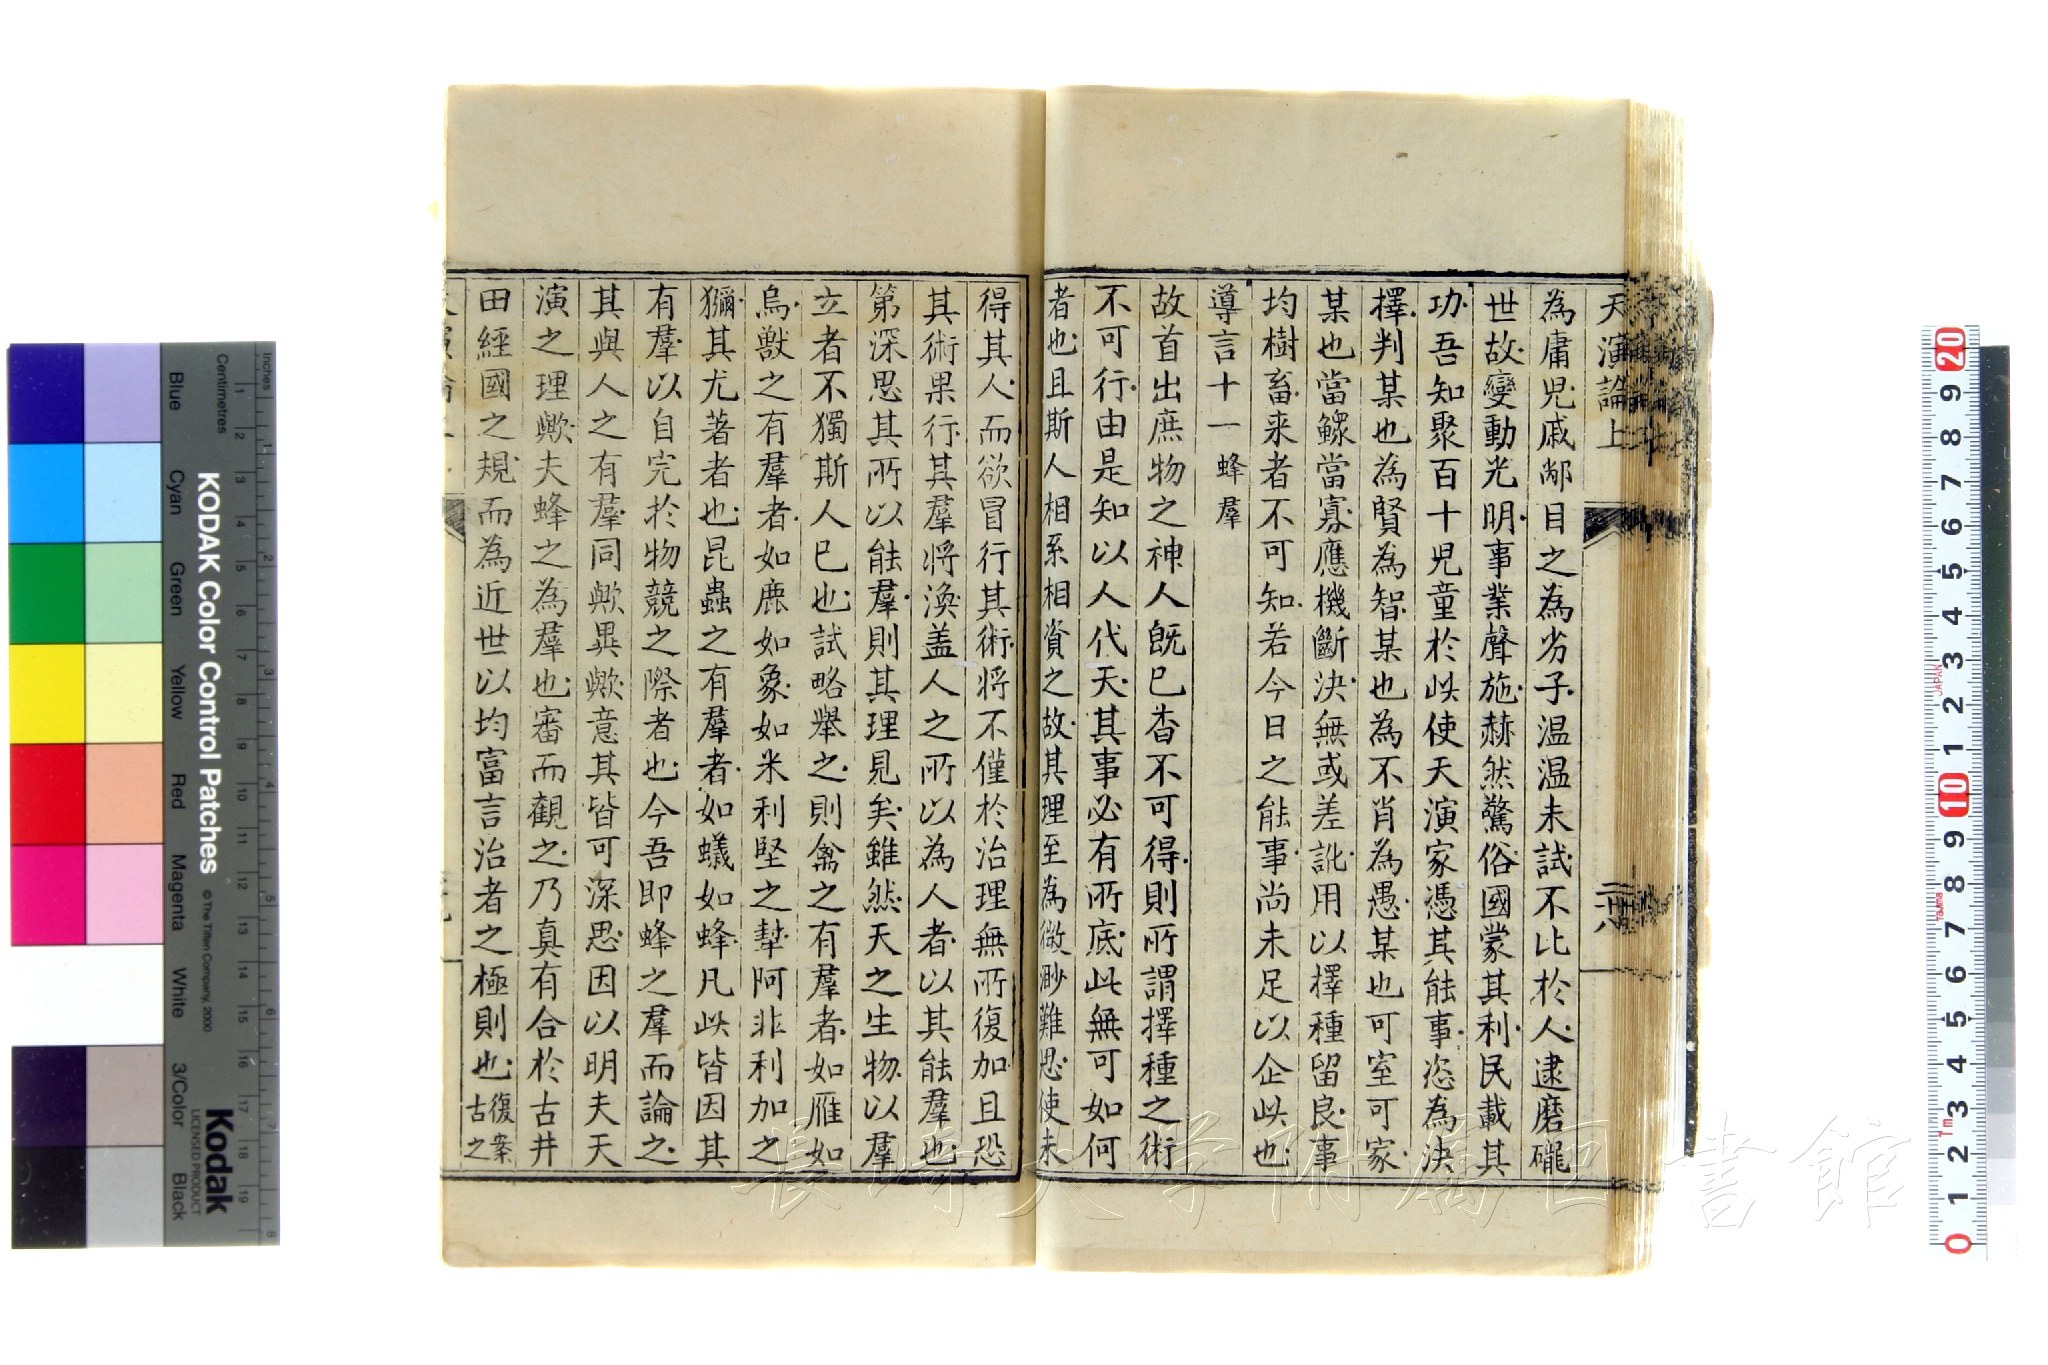 天演論上
二十八
為庸兒戚鄰目之為劣子溫溫未試不比於人逮磨礲
世故變動光明事業聲施赫然驚俗國蒙其利民載其
功吾知聚百十兒童於此使天演家憑其能事恣為決
擇判某也為賢為智某也為不肖為愚某也可室可家
某也當鰥當寡應機斷決無或差訛用以擇種留良事
均樹畜來者不可知若今日之能事尚未足以企此也
導言十一 蜂羣
故首出庶物之神人既已杳不可得則所謂擇種之術
不可行由是知以人代天其事必有所底此無可如何
者也且斯人相系相資之故其理至為微渺難思使未
得其人而欲冒行其術將不僅於治理無所復加且恐
其術果行其羣將渙盖人之所以為人者以其能羣也
第深思其所以能羣則其理見矣雖然天之生物以羣
立者不獨斯人已也試略舉之則禽之有羣者如雁如
烏獸之有羣者如鹿如象如米利堅之犎阿非利加之
獼其尤著者也昆蟲之有羣者如蟻如蜂凡此皆因其
有羣以自完於物競之際者也今吾即蜂之羣而論之
其與人之有羣同歟異歟意其皆可深思因以明夫天
演之理歟夫蜂之為羣也審而觀之乃真有合於古井
田經國之規而為近世以均富言治者之極則也復案
古之
KODAK Color Control Patches
© The Tiffen Company, 2000
Kodak
LICENSED PRODUCT
Inches 1 2 3 4 5 6 7 8
Centimetres 1 2 3 4 5 6 7 8 9 10 11 12 13 14 15 16 17 18 19
Blue Cyan Green Yellow Red Magenta White 3/Color Black
0 1 2 3 4 5 6 7 8 9 10 1 2 3 4 5 6 7 8 9 20
JAPAN
Tajima
Tm
長崎大学附属図書館